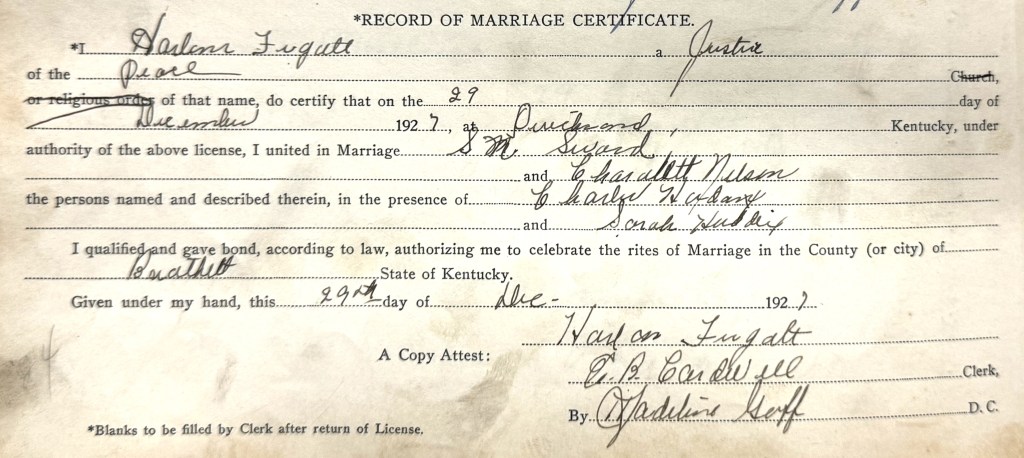 *RECORD OF MARRIAGE CERTIFICATE.
*I Harlan Fugatt a Justice
of the Peace Church,
or religious order of that name, do certify that on the 29 day of
December 1927, at Kentucky, under
authority of the above license, I united in Marriage S M. Sword
and Charalett Nelson
the persons named and described therein, in the presence of Charlie Haddix
and Sarah Haddix
I qualified and gave bond, according to law, authorizing me to celebrate the rites of Marriage in the County (or city) of
Breathitt State of Kentucky.
Given under my hand, this 29th day of Dec- 1927
Harlan Fugatt
A Copy Attest:
E. B. Cardwell Clerk,
By Madeline Goff D. C.
*Blanks to be filled by Clerk after return of License.